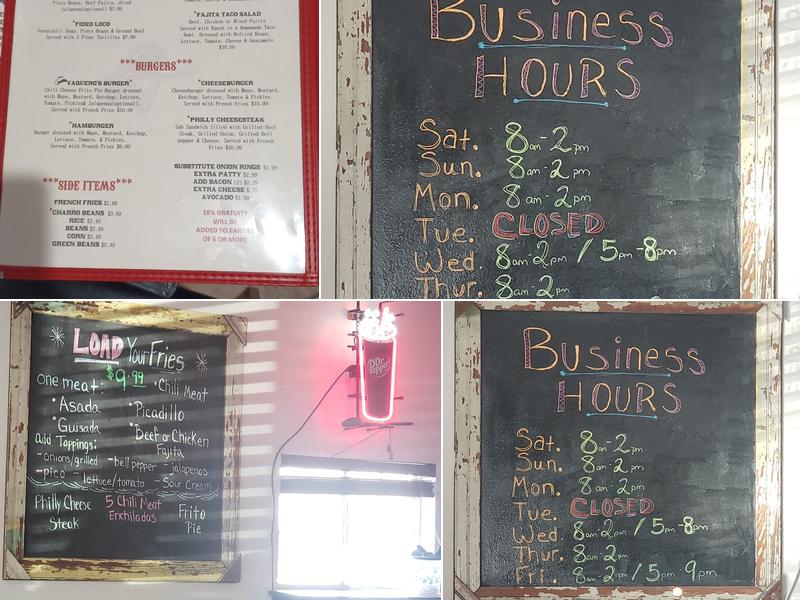 Pinto Beans, Beef Fajita, diced
Jalapenos(optional) $7.99
*FIDEO LOCO
Vermicelli Soup, Pinto Beans & Ground Beef
Served with 2 Flour Tortillas $7.99
*FAJITA TACO SALAD
Beef, Chicken or Mixed Fajita
Served with Ranch in a Homemade Taco
Bowl. Dressed with Refried Beans,
Lettuce, Tomato, Cheese & Guacamole
$10.99
***BURGERS***
*VAQUERO'S BURGER*
Chili Cheese Frito Pie Burger dressed
with Mayo, Mustard, Ketchup, Lettuce,
Tomato, Pickles& Jalapenos(optional).
Served with French Fries $10.99
*CHEESEBURGER
Cheeseburger dressed with Mayo, Mustard,
Ketchup, Lettuce, Tomato & Pickles.
Served with French Fries $10.99
*HAMBURGER
Burger dressed with Mayo, Mustard, Ketchup,
Lettuce, Tomato, & Pickles.
Served with French Fries $9.99
*PHILLY CHEESESTEAK
Sub Sandwich filled with Grilled Beef
Steak, Grilled Onion, Grilled Bell
pepper & Cheese. Served with French
Fries $10.99
***SIDE ITEMS***
FRENCH FRIES $2.49
*CHARRO BEANS $3.49
RICE $2.49
BEANS $2.49
CORN $2.49
GREEN BEANS $2.49
SUBSTITUTE ONION RINGS $1.99
EXTRA PATTY $2.99
ADD BACON (2) $2.29
EXTRA CHEESE $.75
AVOCADO $1.99
18% GRATUITY
WILL BE
ADDED TO PARTIES
OF 6 OR MORE
Business
HOURS
Sat. 8am-2pm
Sun. 8am-2pm
Mon. 8am-2pm
Tue. CLOSED
Wed. 8am-2pm / 5pm-8pm
Thur. 8am-2pm
LOAD Your Fries
$9.99
one meat:
• Asada
• Guisada
• Chili Meat
• Picadillo
• Beef or Chicken
Fajita
add Toppings:
-onions/grilled -bell pepper -jalapenos
-pico -lettuce/tomato -Sour Cream
Philly Cheese
Steak
5 Chili Meat
Enchiladas
Frito
Pie
Dr Pepper
Business
HOURS
Sat. 8am-2pm
Sun. 8am-2pm
Mon. 8am-2pm
Tue. CLOSED
Wed. 8am-2pm / 5pm-8pm
Thur. 8am-2pm
Fri. 8am-2pm / 5pm-9pm